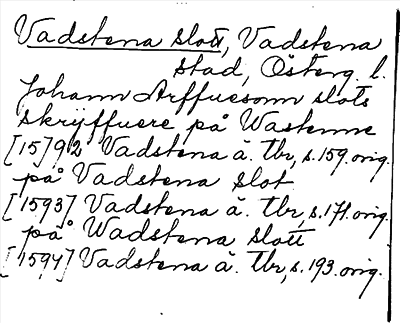 Vadstena slott, Vadstena
stad, Österg. l.
Johann Arffuesonn slots
skrijffuere på Wastenne
[15]92 Vadstena ä. tbr, s. 159. orig.
på Vadstena slot
[1593] Vadstena ä. tbr, s. 171. orig.
på Wadstena slott
[1594] Vadstena ä. tbr, s. 193. orig.